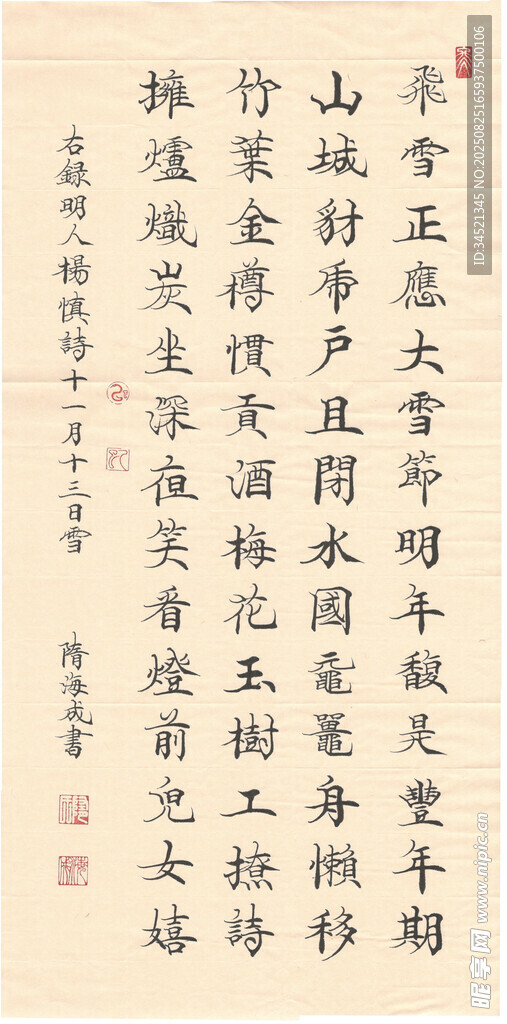 飛雪正應大雪節明年馥是豐年期
山城豺虎户且閉水國黿鼉身懶移
竹葉金樽慣貢酒梅花玉樹工撩詩
擁爐熾炭坐深夜笑看燈前兒女嬉
右録明人楊慎詩十一月十三日雪
隋海成書
ID:34521345 NO:20250825165937500106
昵享网 www.nipic.cn